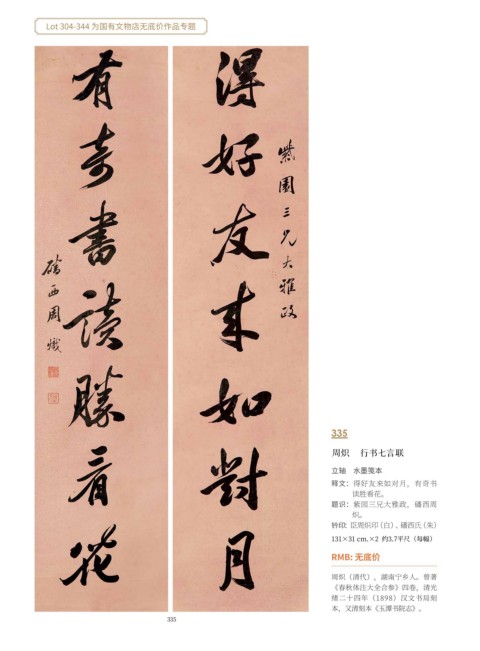 Lot 304-344 为国有文物店无底价作品专题
得好友来如對月
紫園三兄大雅政
有奇書读勝看花
磻西周熾
335
周炽 行书七言联
立轴 水墨笺本
释文：得好友来如对月，有奇书
读胜看花。
题识：紫园三兄大雅政，磻西周
炽。
钤印：臣周炽印（白）、磻西氏（朱）
131×31 cm.×2 约3.7平尺（每幅）
RMB: 无底价
周炽（清代），湖南宁乡人。曾著
《春秋体注大全合参》四卷，清光
绪二十四年（1898）汉文书局刻
本，又清刻本《玉潭书院志》。
335